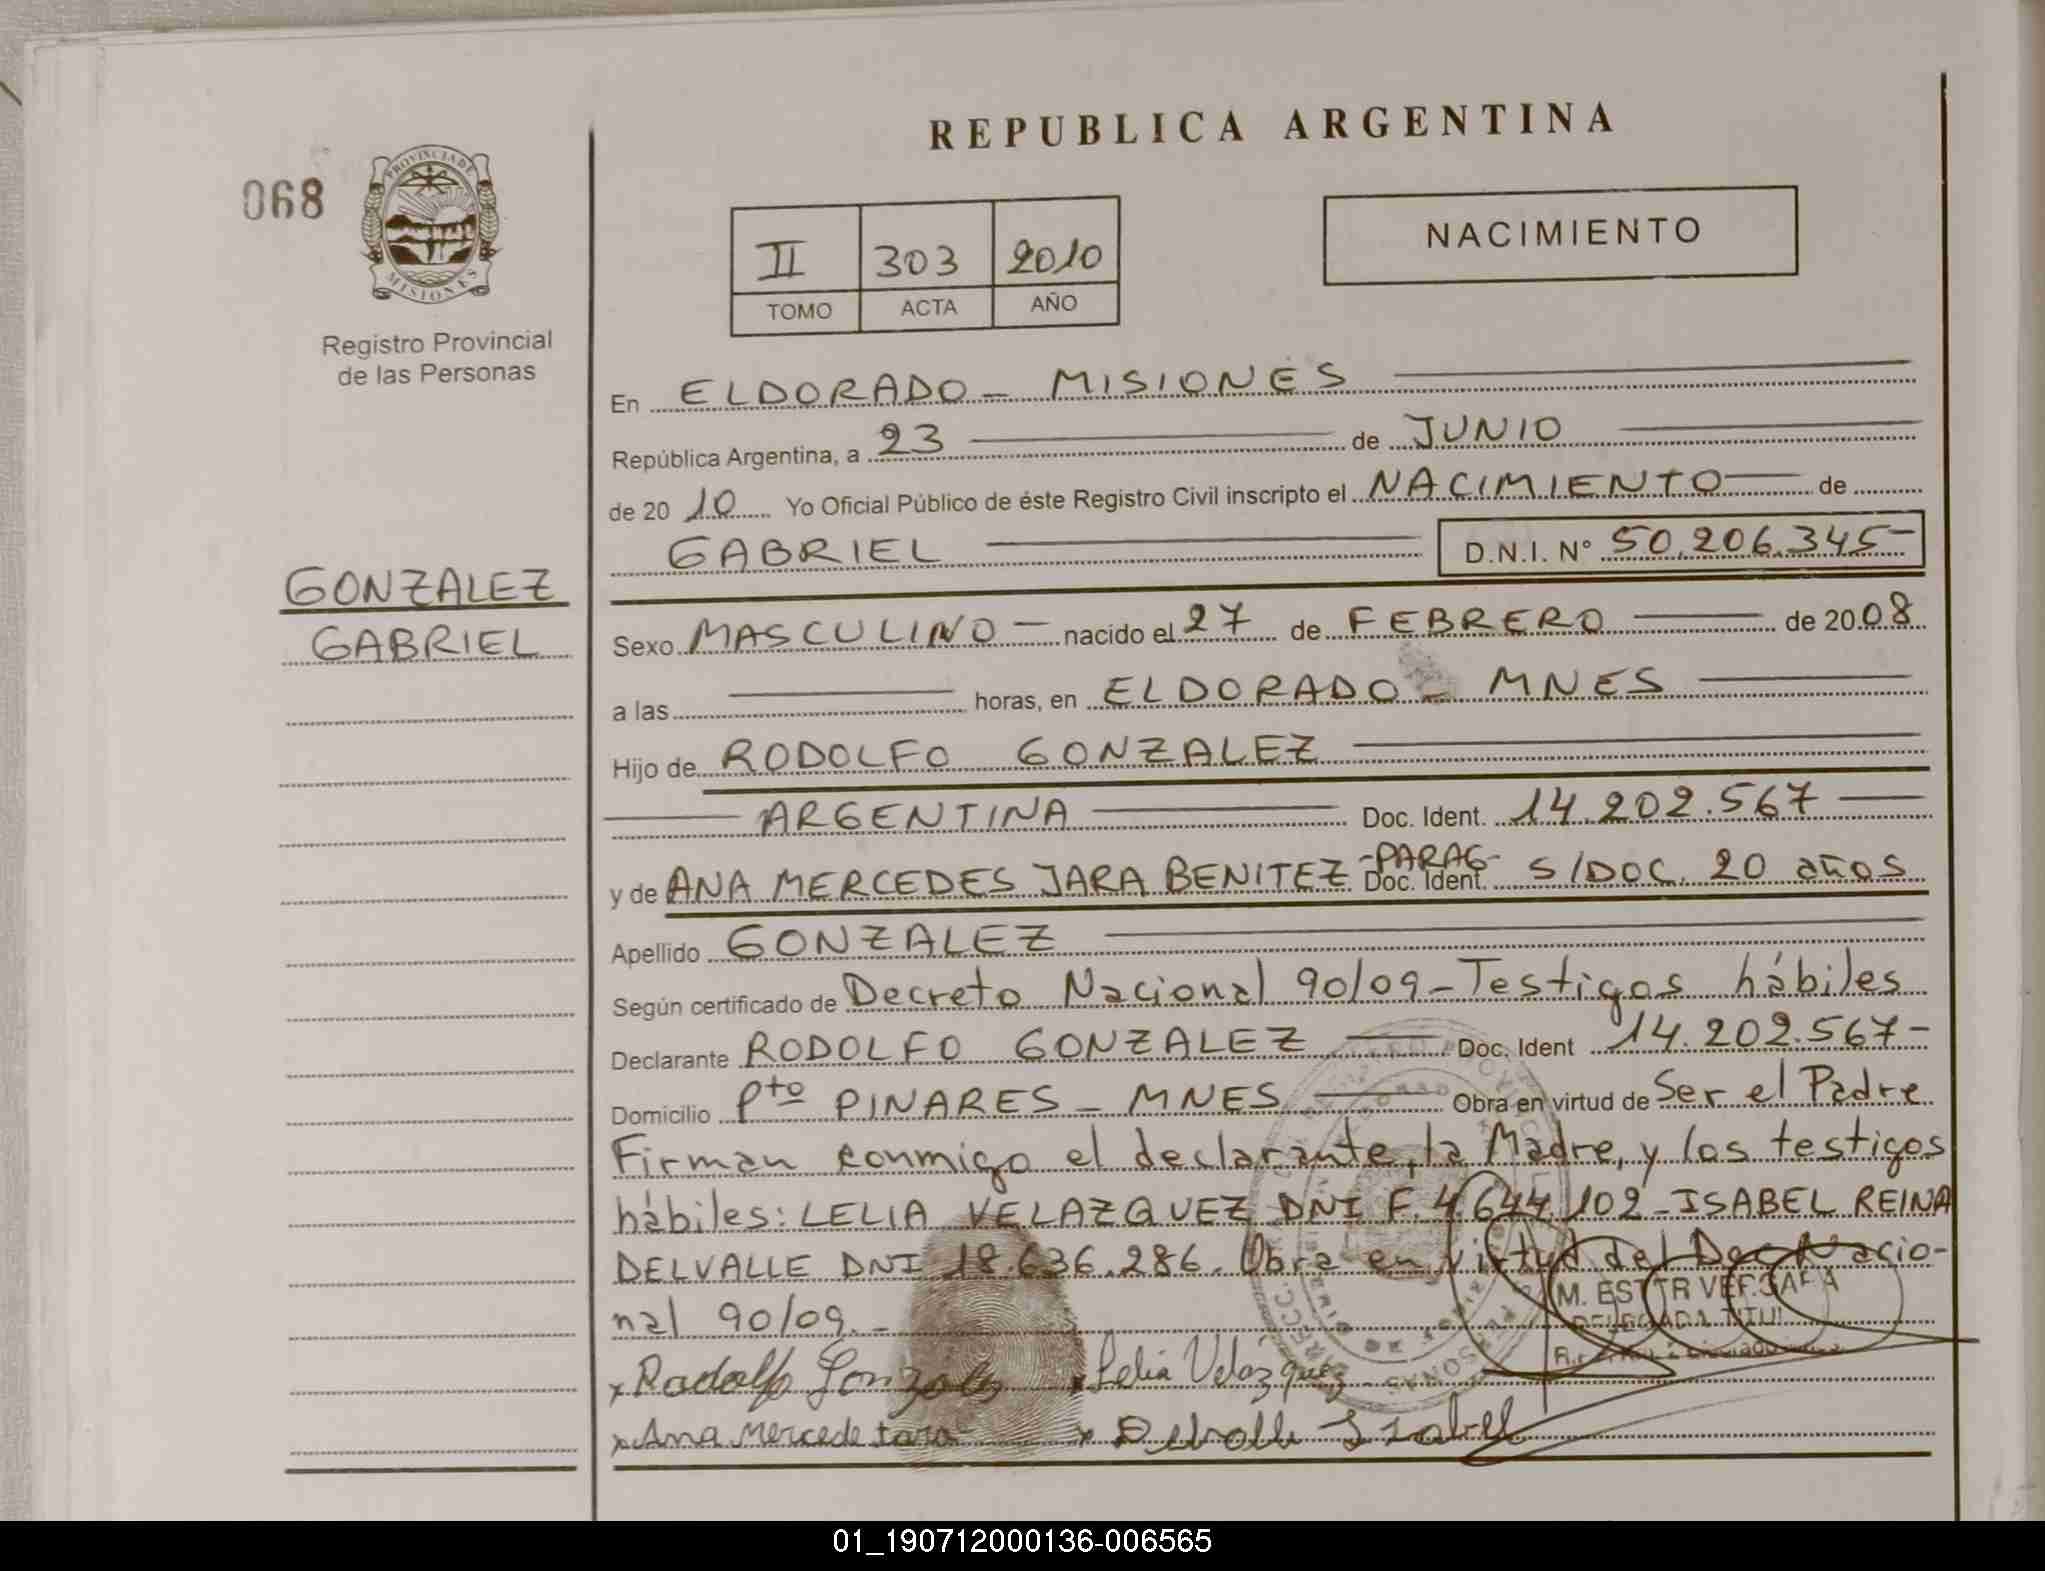 REPUBLICA ARGENTINA
068
PROVINCIA DE
MISIONES
Registro Provincial
de las Personas
II 303 2010
TOMO ACTA AÑO
NACIMIENTO
GONZALEZ
GABRIEL
En ELDORADO - MISIONES
República Argentina, a 23 de JUNIO
de 2010 Yo Oficial Público de éste Registro Civil inscripto el NACIMIENTO de
GABRIEL D.N.I. N° 50.206.345-
Sexo MASCULINO - nacido el 27 de FEBRERO de 2008
a las horas, en ELDORADO - MNES
Hijo de RODOLFO GONZALEZ
ARGENTINA Doc. Ident. 14.202.567
y de ANA MERCEDES JARA BENITEZ -PARAG- Doc. Ident. S/DOC. 20 años
Apellido GONZALEZ
Según certificado de Decreto Nacional 90/09 - Testigos hábiles
Declarante RODOLFO GONZALEZ Doc. Ident 14.202.567-
Domicilio Pto PINARES - MNES Obra en virtud de Ser el Padre
Firman conmigo el declarante, la Madre, y los testigos
hábiles: LELIA VELAZQUEZ DNI F. 4.644.102 - ISABEL REINA
DELVALLE DNI 18.636.286. Obra en virtud del Dec Nacio-
nal 90/09.-
x Rodolfo Gonzalez x Lelia Velazquez
x Ana Mercede Jara x Delvalle Isabel
01_190712000136-006565